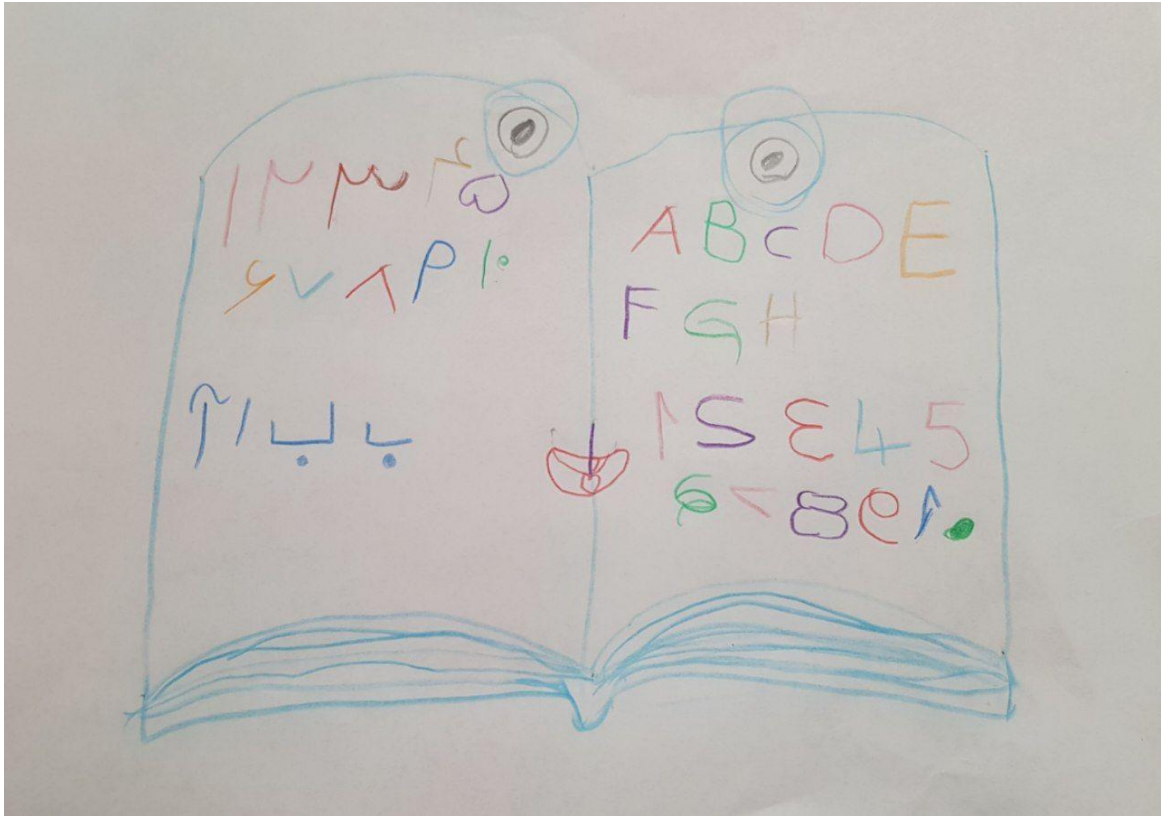 ۱ ۲ ۳ ۴ ۵
۶ ۷ ۸ ۹ ۱۰
آ ا ب بـ
A B C D E
F G H
1 2 3 4 5
6 7 8 9 10